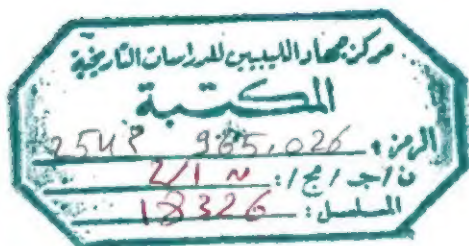 مركز جهاد الليبيين للدراسات التاريخية
المكتبة
الرمز: 965.026
ن / ج / مج /: 2/1 ن
المسلسل: 18326